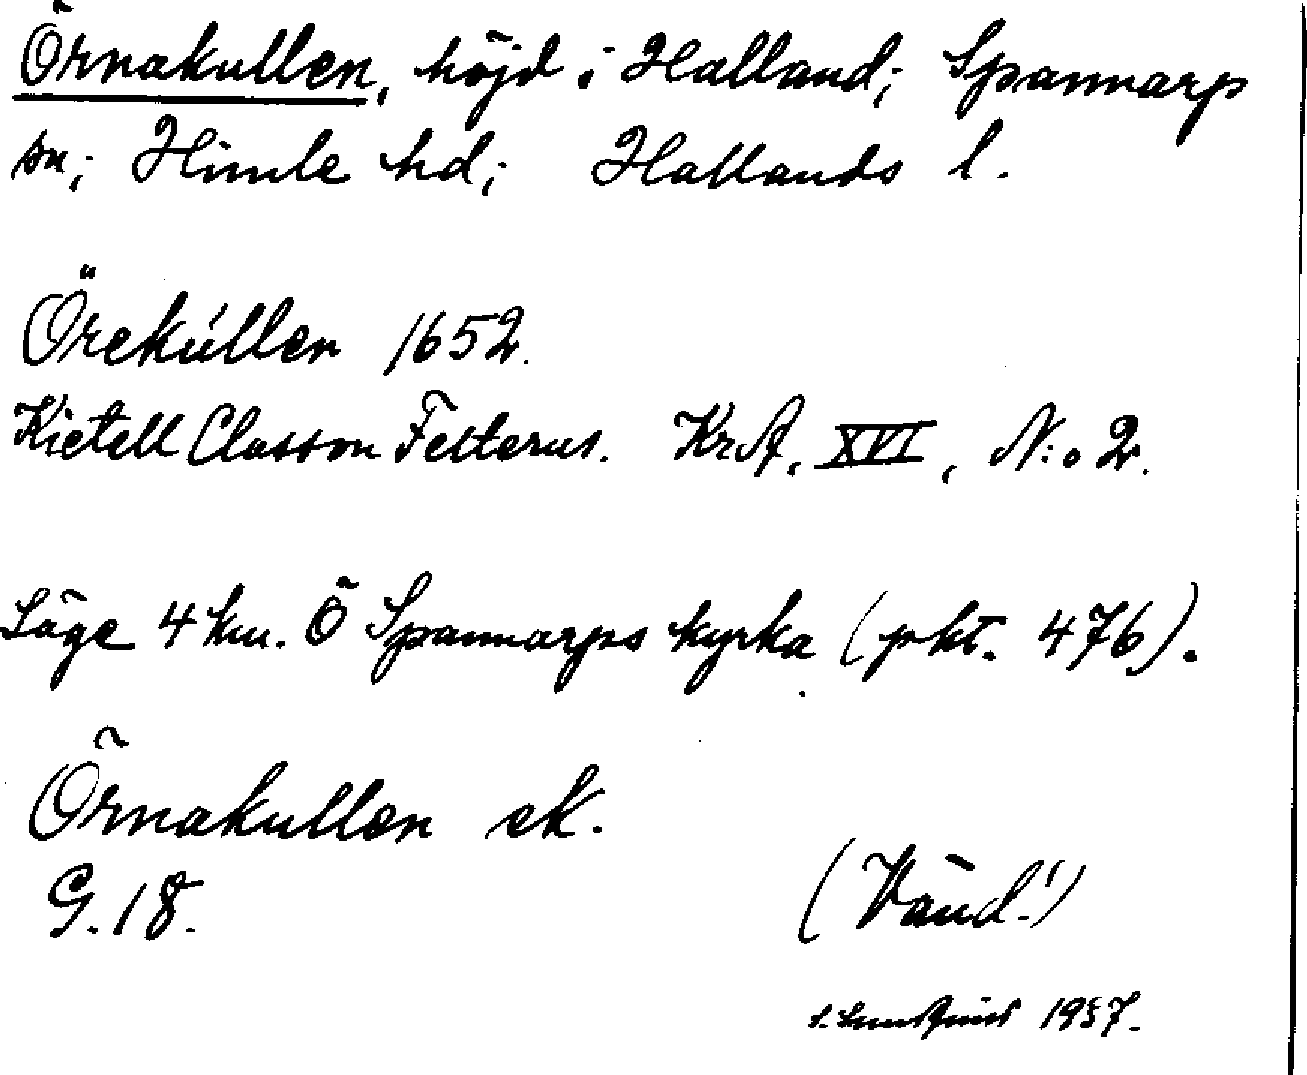 Örnakullen, höjd i Halland; Spannarp
sn; Himle hd; Hallands l.
Örekúllen 1652.
Kietell Classon Felterus. KrA, XVI, N:o 2.
Läge 4 km. Ö Spannarps kyrka (pkt. 476).
Örnakullen ek.
G. 18.
(Vänd!)
1937.